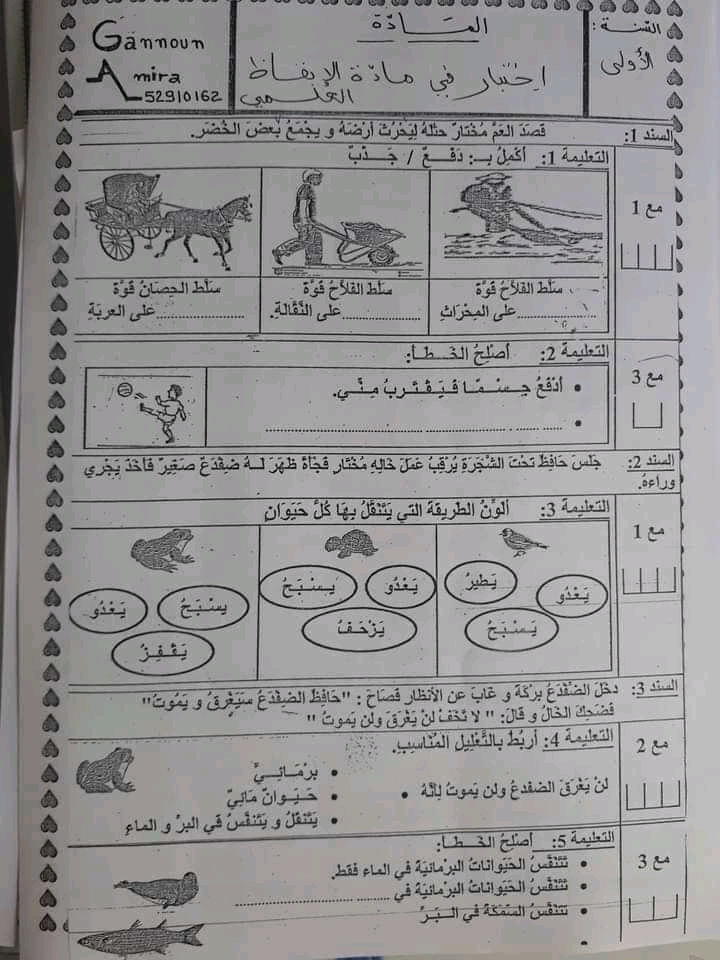 السّنة:
الأولى
المَــادّة
اِختبار في مادّة الإيقاظ
العلمي
Gannoun
Amira
52910162
السند 1: قَصَدَ العَمُّ مُخْتَارٌ حَقْلَهُ لِيَحْرُثَ أَرْضَهُ و يجْمَعَ بَعْضَ الخُضَرِ.
مع 1
التعليمة 1: أُكْمِلُ بـ: دَفْـعٌ / جَـذْبٌ
سَلَّطَ الفَلاّحُ قُوَّةَ
............على المِحْرَاثِ
سَلَّطَ الفَلاّحُ قُوَّةَ
............على النَّقَّالَةِ.
سَلَّطَ الحِصَانُ قُوَّةَ
............على العربَةِ
مع 3
التعليمة 2: أُصْلِحُ الخَـطَـأَ:
• أَدْفَعُ جِـسْـمًـا فَـيَـقْـتَـرِبُ مِـنِّـي.
• ........................................
السند 2: جَلَسَ حَافِظٌ تَحْتَ الشَّجَرَةِ يُرْقِبُ عَمَلَ خَالِهِ مُخْتَار فَجْأَةً ظَهَرَ لَـهُ ضِفْدَعٌ صَغِيرٌ فَأَخَذَ يَجْرِي
وراءهُ.
مع 1
التعليمة 3: أُلَوِّنُ الطريقة التي يَتَنَقَّلُ بِهَا كُلُّ حَيَوَانٍ
يَطِيرُ
يَعْدُو
يَسْبَحُ
يَعْدُو
يَـسْـبَـحُ
يَزْحَفُ
يَسْبَحُ
يَعْدُو
يَقْفِزُ
السند 3: دخلَ الضّفْدَعُ بِرْكَةً و غَابَ عن الأنظار فَصَاحَ : "حَافِظُ الضِفْدَعُ سَيَغْرِقُ و يَمُوتُ"
فَضَحِكَ الخَالُ و قَالَ: " لا تَخَفْ لنْ يَغْرَقَ ولن يَموتُ "
مع 2
التعليمة 4: أربُطُ بالتَّعْلِيلِ المُنَاسِبِ.
لنْ يَغْرَقَ الضفدعُ ولن يَموتُ لِأنَّهُ •
• برْمَـائِـيٌّ
• حَـيَـوانٌ مَائِيٌّ
• يَتَنَقَّلُ و يَتَنَفَّسُ في البرّ و الماء
مع 3
التعليمة 5: أُصْلِحُ الخَـطَـأَ:
• تَتَنَفَّسُ الحَيَوَانَاتُ البَرْمَائِيَة في الماء فقط.
• تَتَنَفَّسُ الحَيَوَانَاتُ البَرْمَائِيَة في ....................
• تَتَنَفَّسُ السَّمَكَةُ في البَـرِّ
•